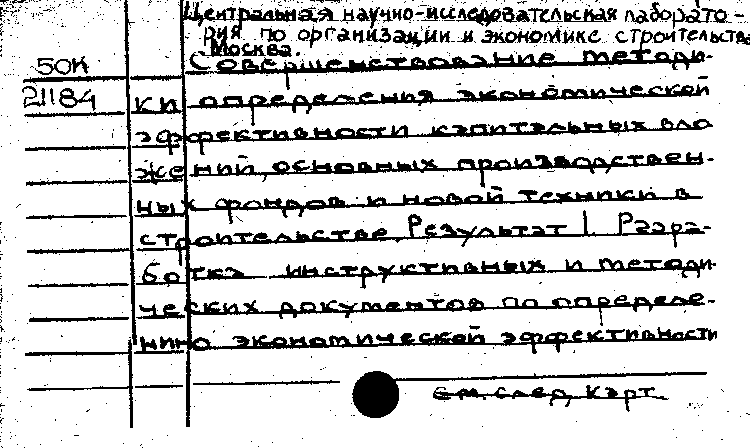 Центральная научно-исследовательская лаборато-
рия по организации и экономике строительства
Москва.
50К Совершенствование методи-
21184 ки определения экономической
эффективности капитальных вло
жений, основных производствен-
ных фондов и новой техники в
строительстве. Результат 1. Разра-
ботка инструктивных и методи-
ческих документов по определе-
нию экономической эффективности
см. след. карт.